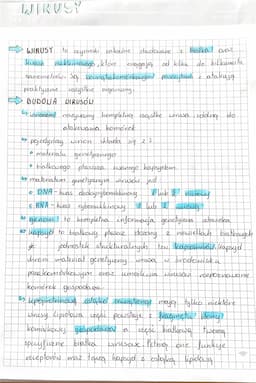 WIRUSY
→ WIRUSY to czynniki zakaźne zbudowane z białka oraz
kwasu nukleinowego, które osiągają od kilku do kilkuset
nanometrów. Są wewnątrzkomórkowymi pasożytami i atakują
praktycznie wszystkie organizmy.
→ BUDOWA WIRUSÓW
wirionem nazywamy kompletną cząstkę wirusa zdolną do
atakowania komórek
pojedynczy wirion składa się z:
• materiału genetycznego
• białkowego płaszcza zwanego kapsydem
materiałem genetycznym wirusów jest
DNA - kwas deoksyrybonukleinowy 1 lub 2
RNA - kwas rybonukleinowy 1 lub 2
genom to kompletna informacja genetyczna
kapsyd to białkowy płaszcz złożony z niewielkich białkowych
jednostek strukturalnych tzw. kapsomerów. Kapsyd
chroni materiał genetyczny wirusa w środowisku
pozakomórkowym oraz umożliwia wirusowi rozpoznawanie
komórek gospodarza.
mają tylko niektóre
wirusy. Lipidowa część powstaje z fragmentu błony
komórkowej gospodarza a część białkową tworzą
specyficzne białka wirusowe. Pełnią one funkcje
receptorów oraz łączą kapsyd z osłonką lipidową